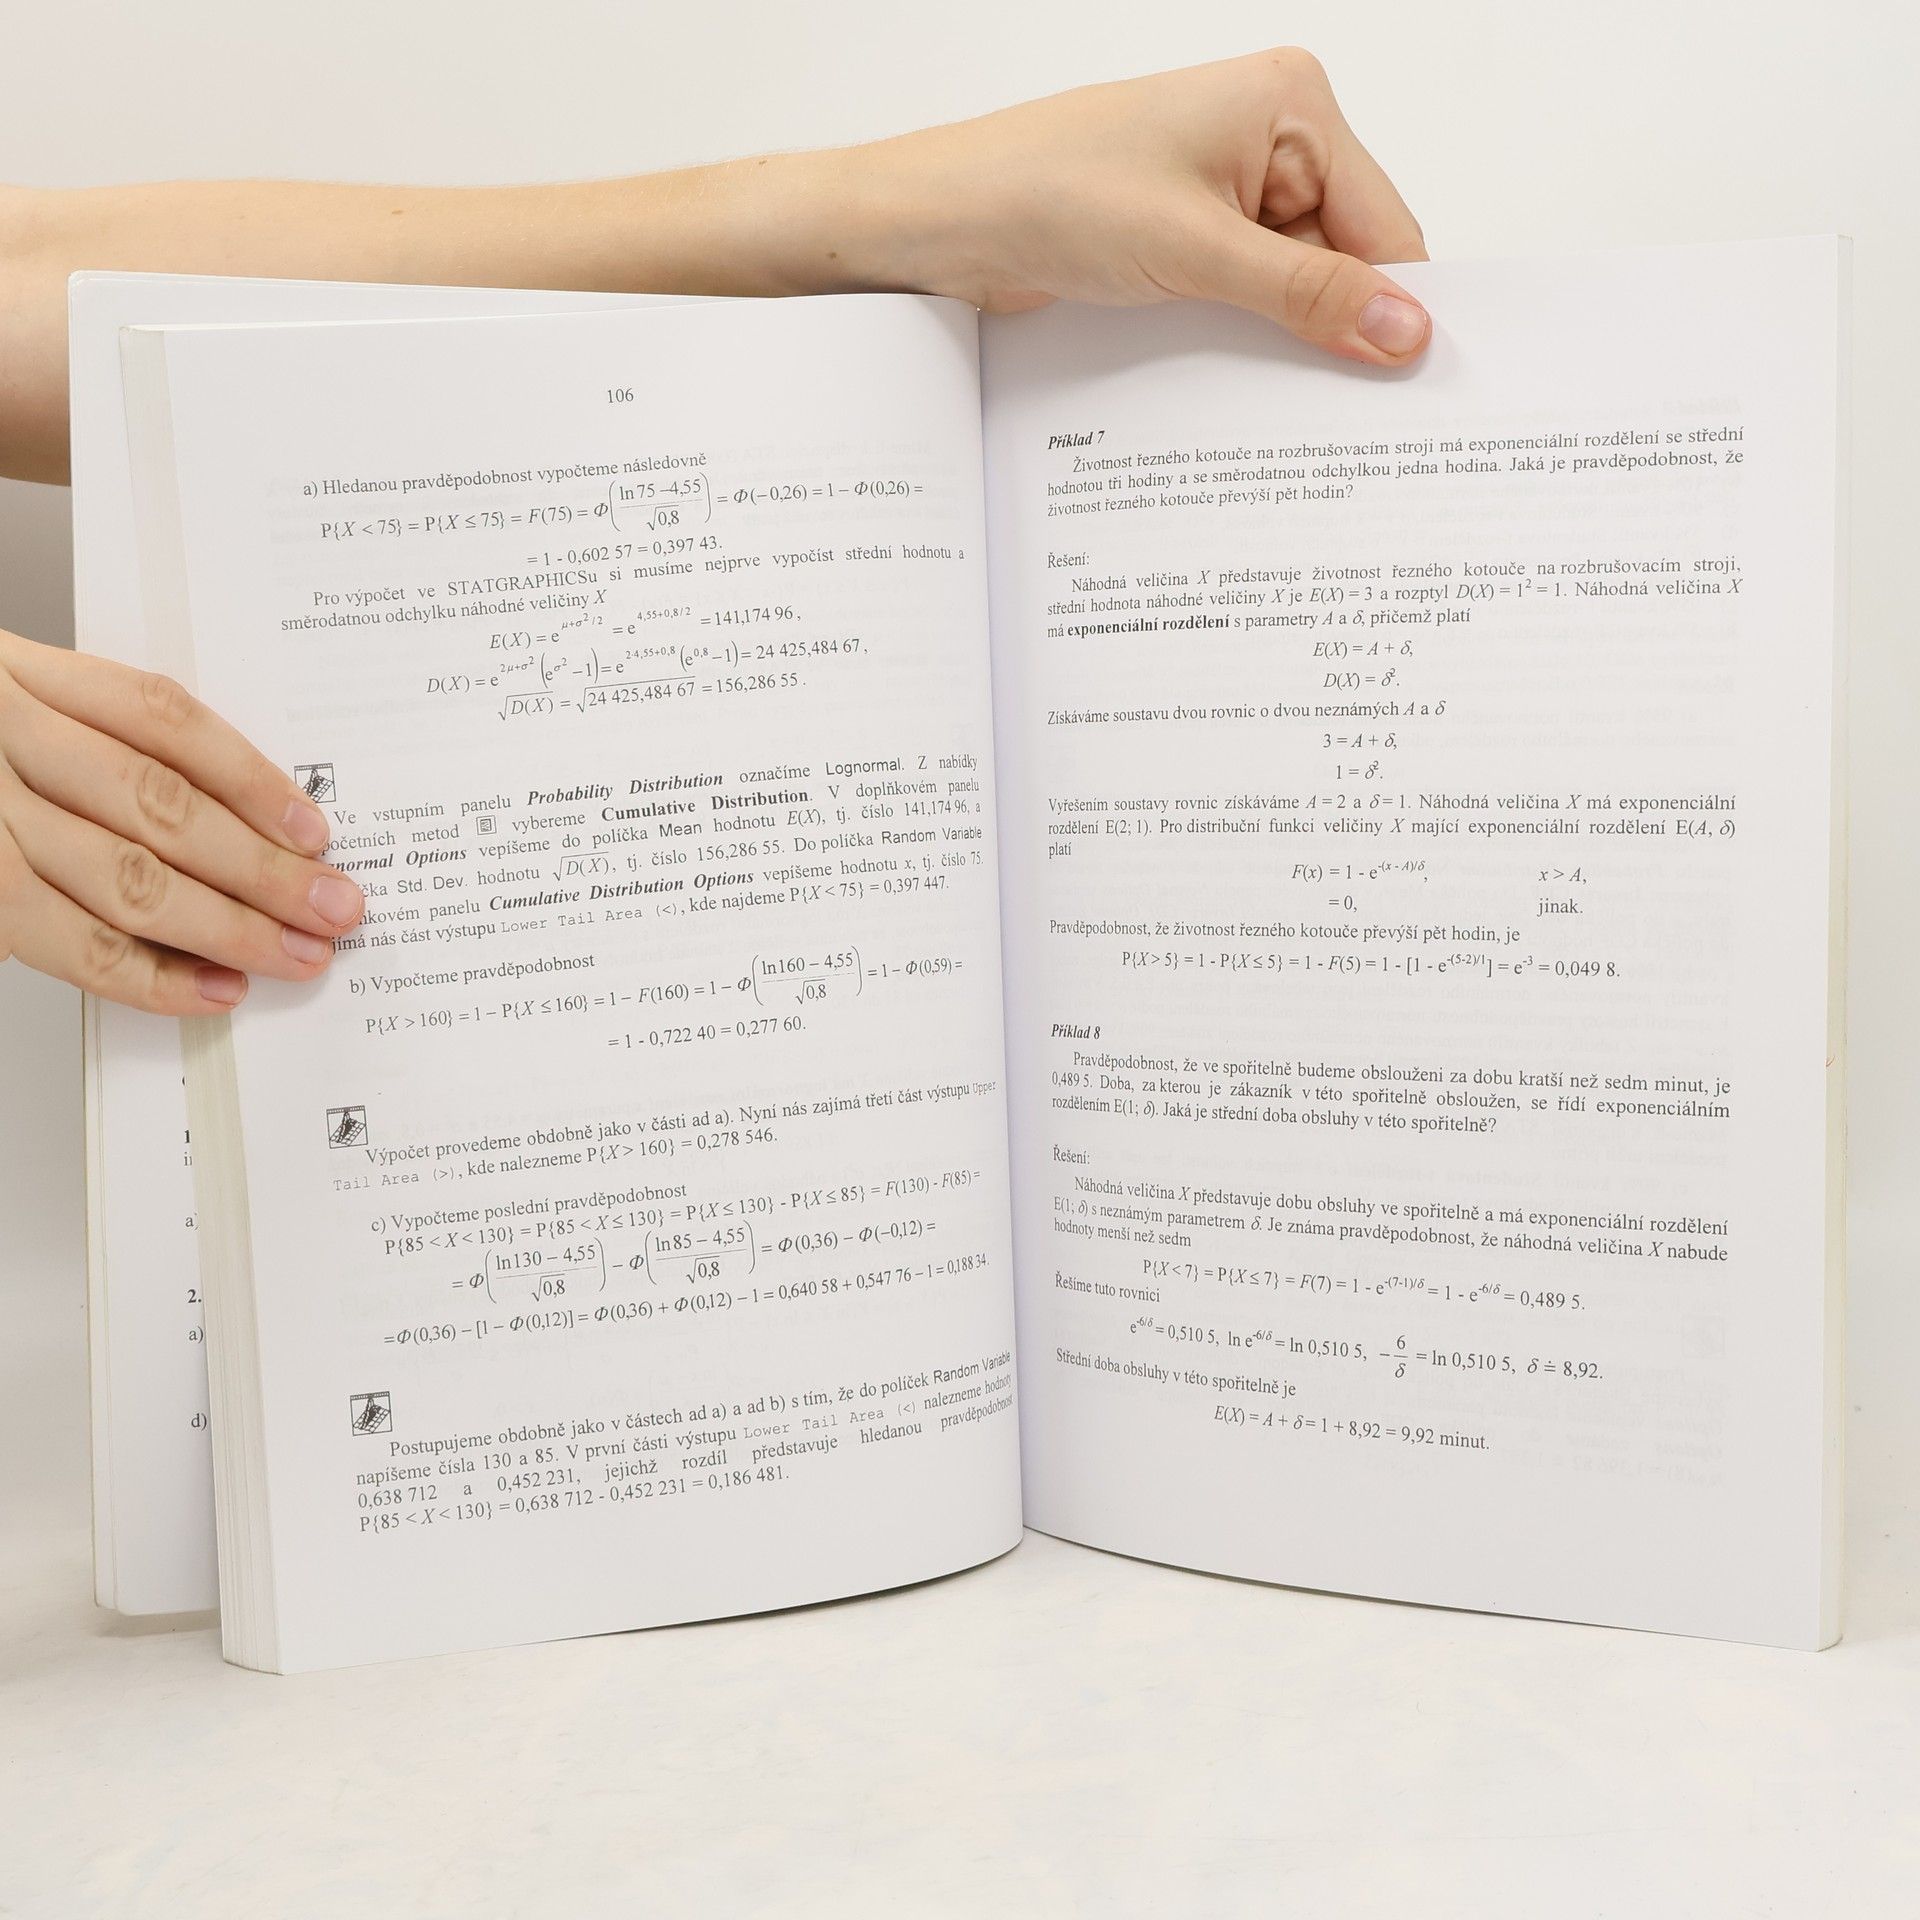 106
a) Hledanou pravděpodobnost vypočteme následovně
P{X < 75} = P{X ≤ 75} = F(75) = Φ((ln 75 – 4,55)/√0,8) = Φ(– 0,26) = 1 – Φ(0,26) =
= 1 - 0,602 57 = 0,397 43.
Pro výpočet ve STATGRAPHICSu si musíme nejprve vypočíst střední hodnotu a
směrodatnou odchylku náhodné veličiny X
E(X) = e^(μ+σ²/2) = e^(4,55+0,8/2) = 141,174 96 ,
D(X) = e^(2μ+σ²) (e^(σ²) – 1) = e^(2·4,55+0,8) (e^(0,8) – 1) = 24 425,484 67 ,
√D(X) = √24 425,484 67 = 156,286 55 .
Ve vstupním panelu Probability Distribution označíme Lognormal. Z nabídky
početních metod vybereme Cumulative Distribution. V doplňkovém panelu
normal Options vepíšeme do políčka Mean hodnotu E(X), tj. číslo 141,174 96, a
čka Std. Dev. hodnotu √D(X), tj. číslo 156,286 55. Do políčka Random Variable
kovém panelu Cumulative Distribution Options vepíšeme hodnotu x, tj. číslo 75.
jímá nás část výstupu Lower Tail Area (<), kde najdeme P{X < 75} = 0,397 447.
b) Vypočteme pravděpodobnost
P{X > 160} = 1 – P{X ≤ 160} = 1 – F(160) = 1 – Φ((ln 160 – 4,55)/√0,8) = 1 – Φ(0,59) =
= 1 - 0,722 40 = 0,277 60.
Výpočet provedeme obdobně jako v části ad a). Nyní nás zajímá třetí část výstupu Upper
Tail Area (>), kde nalezneme P{X > 160} = 0,278 546.
c) Vypočteme poslední pravděpodobnost
P{85 < X < 130} = P{85 < X ≤ 130} = P{X ≤ 130} - P{X ≤ 85} = F(130) - F(85) =
= Φ((ln 130 – 4,55)/√0,8) – Φ((ln 85 – 4,55)/√0,8) = Φ(0,36) – Φ(–0,12) =
= Φ(0,36) – [1 – Φ(0,12)] = Φ(0,36) + Φ(0,12) – 1 = 0,640 58 + 0,547 76 – 1 = 0,188 34.
Postupujeme obdobně jako v částech ad a) a ad b) s tím, že do políček Random Variable
napíšeme čísla 130 a 85. V první části výstupu Lower Tail Area (<) nalezneme hodnoty
0,638 712 a 0,452 231, jejichž rozdíl představuje hledanou pravděpodobnost
P{85 < X < 130} = 0,638 712 - 0,452 231 = 0,186 481.
a)
2.
a)
d)
Příklad 7
Životnost řezného kotouče na rozbrušovacím stroji má exponenciální rozdělení se střední
hodnotou tři hodiny a se směrodatnou odchylkou jedna hodina. Jaká je pravděpodobnost, že
životnost řezného kotouče převýší pět hodin?
Řešení:
Náhodná veličina X představuje životnost řezného kotouče na rozbrušovacím stroji,
střední hodnota náhodné veličiny X je E(X) = 3 a rozptyl D(X) = 1² = 1. Náhodná veličina X
má exponenciální rozdělení s parametry A a δ, přičemž platí
E(X) = A + δ,
D(X) = δ².
Získáváme soustavu dvou rovnic o dvou neznámých A a δ
3 = A + δ,
1 = δ².
Vyřešením soustavy rovnic získáváme A = 2 a δ = 1. Náhodná veličina X má exponenciální
rozdělení E(2; 1). Pro distribuční funkci veličiny X mající exponenciální rozdělení E(A, δ)
platí
F(x) = 1 - e^(-(x - A)/δ), x > A,
= 0, jinak.
Pravděpodobnost, že životnost řezného kotouče převýší pět hodin, je
P{X > 5} = 1 - P{X ≤ 5} = 1 - F(5) = 1 - [1 - e^(-(5-2)/1)] = e^(-3) = 0,049 8.
Příklad 8
Pravděpodobnost, že ve spořitelně budeme obslouženi za dobu kratší než sedm minut, je
0,489 5. Doba, za kterou je zákazník v této spořitelně obsloužen, se řídí exponenciálním
rozdělením E(1; δ). Jaká je střední doba obsluhy v této spořitelně?
Řešení:
Náhodná veličina X představuje dobu obsluhy ve spořitelně a má exponenciální rozdělení
E(1; δ) s neznámým parametrem δ. Je známa pravděpodobnost, že náhodná veličina X nabude
hodnoty menší než sedm
P{X < 7} = P{X ≤ 7} = F(7) = 1 - e^(-(7-1)/δ) = 1 - e^(-6/δ) = 0,489 5.
Řešíme tuto rovnici
e^(-6/δ) = 0,510 5, ln e^(-6/δ) = ln 0,510 5, –6/δ = ln 0,510 5, δ ≐ 8,92.
Střední doba obsluhy v této spořitelně je
E(X) = A + δ = 1 + 8,92 = 9,92 minut.